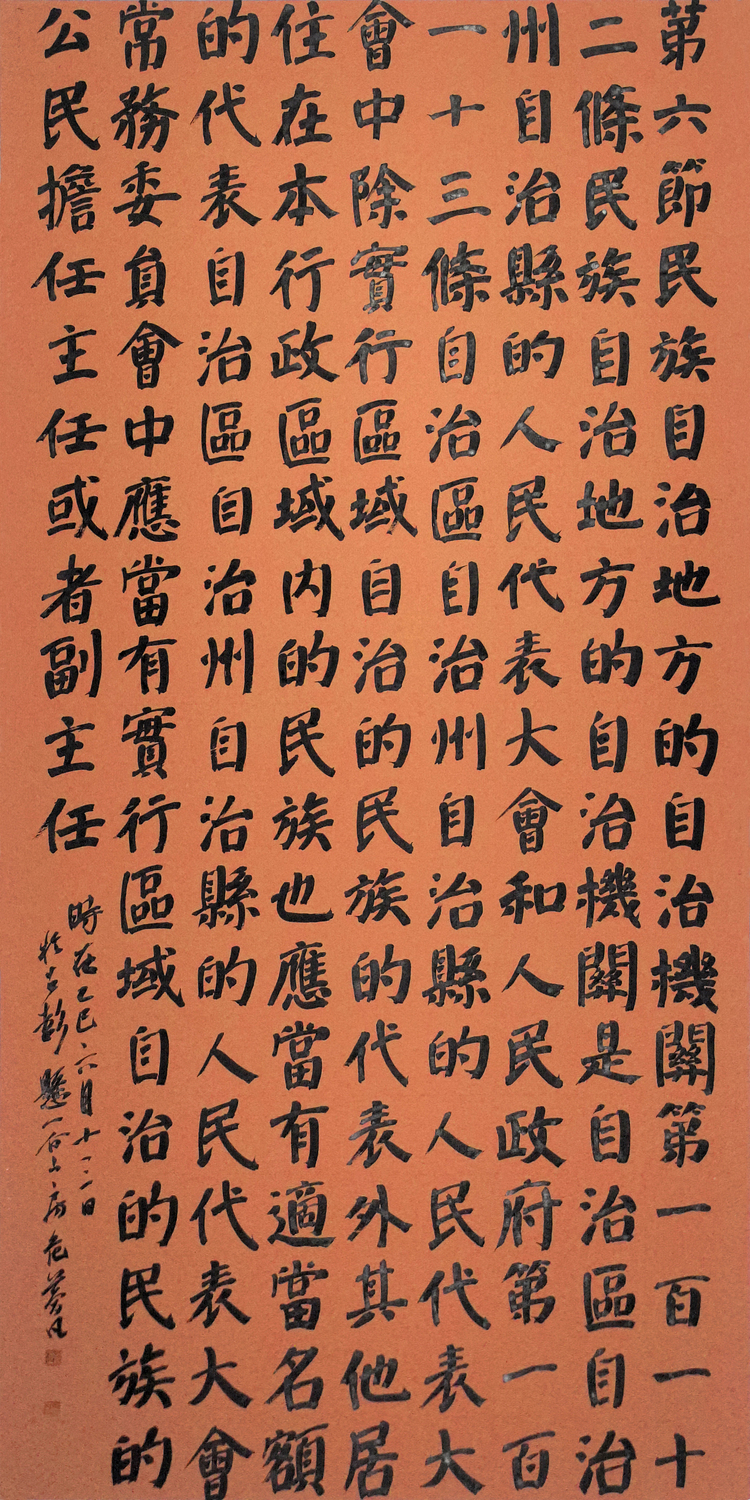 第六節民族自治地方的自治機關第一百一十
二條民族自治地方的自治機關是自治區自治
州自治縣的人民代表大會和人民政府第一百
一十三條自治區自治州自治縣的人民代表大
會中除實行區域自治的民族的代表外其他居
住在本行政區域内的民族也應當有適當名額
的代表自治區自治州自治縣的人民代表大會
常務委員會中應當有實行區域自治的民族的
公民擔任主任或者副主任
時在乙巳六月十二日